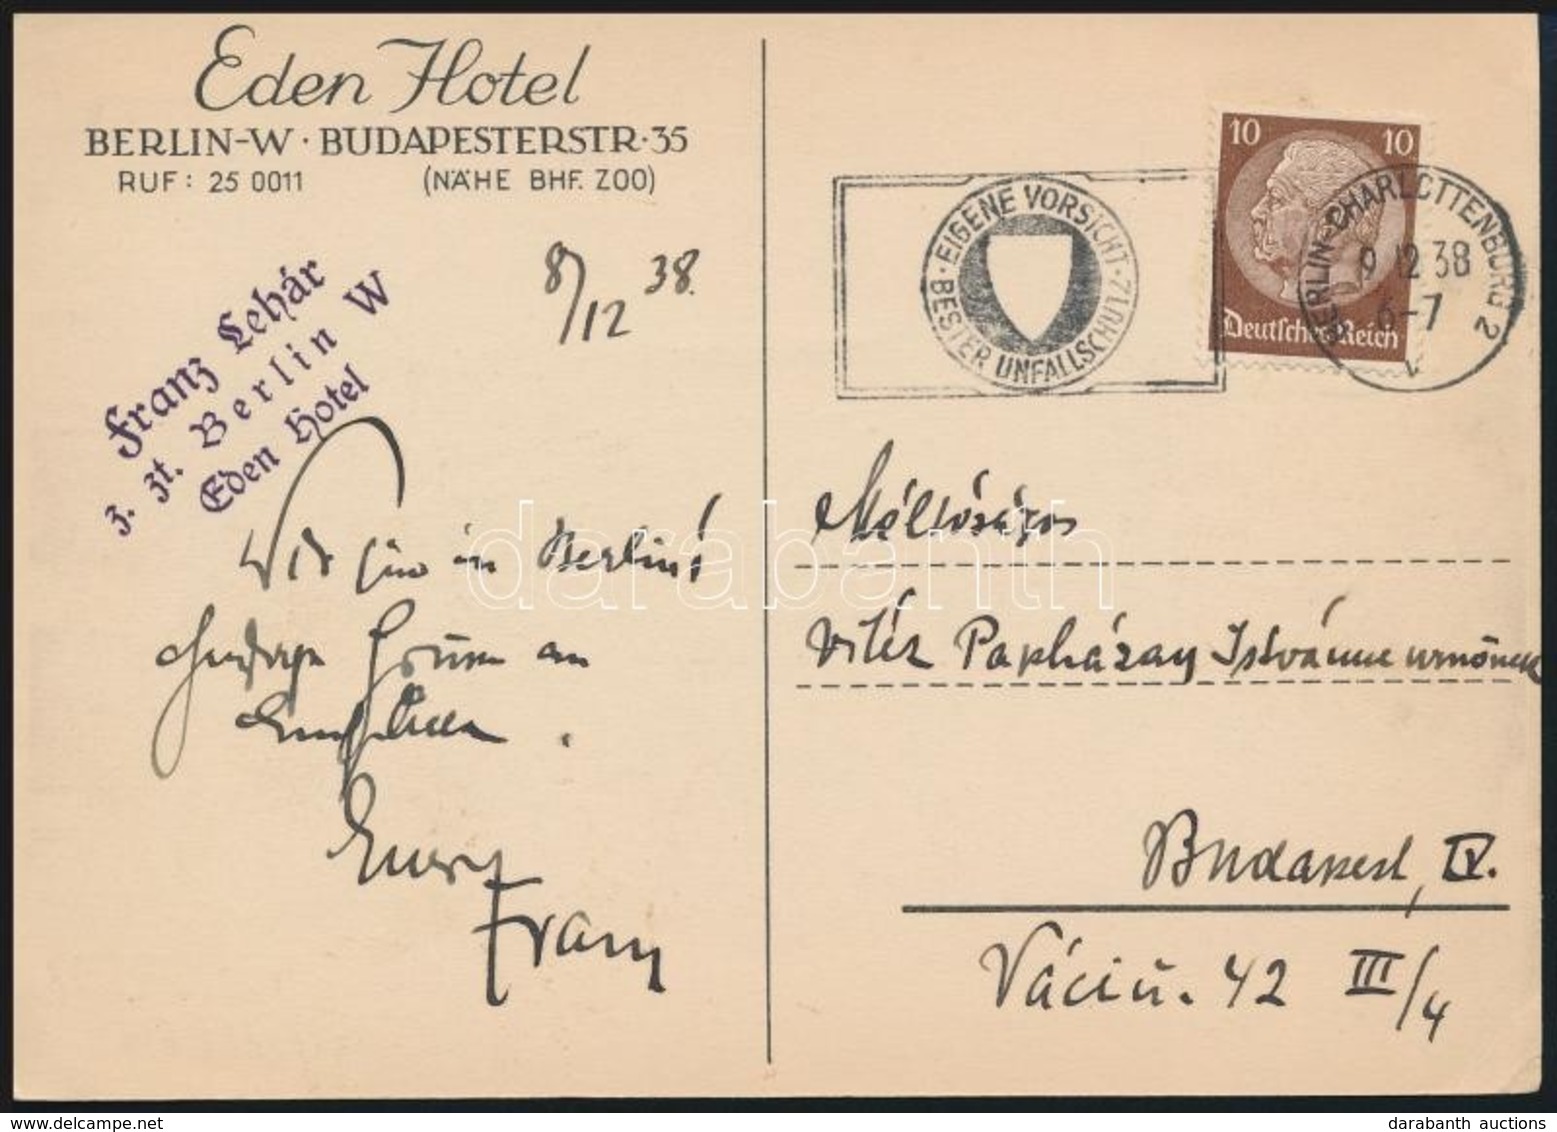 Eden Hotel
BERLIN-W · BUDAPESTERSTR · 35
RUF: 25 0011 (NÄHE BHF. ZOO)
8/12 38.
Franz Lehár
z. Zt. Berlin W
Eden Hotel
Wir sind in Berlin!
Grüsse an
Euer
Franz
· EIGENE VORSICHT ·
BESTER UNFALLSCHUTZ
10 10
Deutsches Reich
BERLIN-CHARLOTTENBURG 2
9.12.38
6-7
Méltóságos
Vitéz Papházay Istvánné urnőnek
Budapest, IV.
Váci u. 42 III/4
darabanth
darabanth auctions